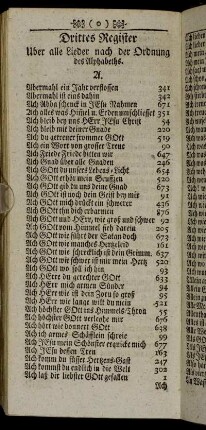 ( o )
Drittes Register
Uber alle Lieder nach der Ordnung
des Alphabeths.
A.
Abermahl ein Jahr verflossen 341
Abermahl ist eins dahin 342
Ach Abba schenck in JEsu Nahmen 671
Ach alles was Himel u. Erden umschliesset 351
Ach bleib bey uns HErr JEsu Christ 54
Ach bleib mit deiner Gnade
Ach du getreuer frommer GOtt 519
Ach ein Wort von grosser Treue 90
Ach Friede Friede bitten wir 647
Ach Gnad über alle Gnaden 246
Ach GOtt du unsers Lebens-Licht 654
Ach GOtt erhör mein Seuffzen 520
Ach GOtt gib du uns deine Gnad 673
Ach GOtt ist noch dein Geist bey mir 91
Ach GOtt mich drückt ein schwerer 436
Ach GOtt thu dich erbarmen 876
Ach GOtt und HErr, wie groß und schwer 92
Ach GOtt vom Himmel sieh darein 205
Ach GOtt wie führt der Satan doch 673
Ach GOtt wie manches Hertzeleid 161
Ach GOtt wie schrecklich ist dein Grimm. 637
Ach GOtt wie schwer ist mir mein Hertz 520
Ach GOtt wo soll ich hin 93
Ach HErr du gerechter GOtt 633
Ach HErr mich armen Sünder 94
Ach HErr wie ist dein Zorn so groß 95
Ach HErr wie lange wilt du mein 521
Ach höchster GOtt ins Himmels-Thron 55
Ach höchster GOtt verleyhe mir 676
Ach hört wie donnert GOtt 638
Ach ich armes Schäfflein schreie 99
Ach JEsu mein Schönster erquicke mich 677
Ach JEsu dessen Treu 163
Ach komm du süsser Hertzens-Gast 247
Ach kommst du endlich in die Welt 302
Ach laß dir liebster GOtt gefallen 1
Ach